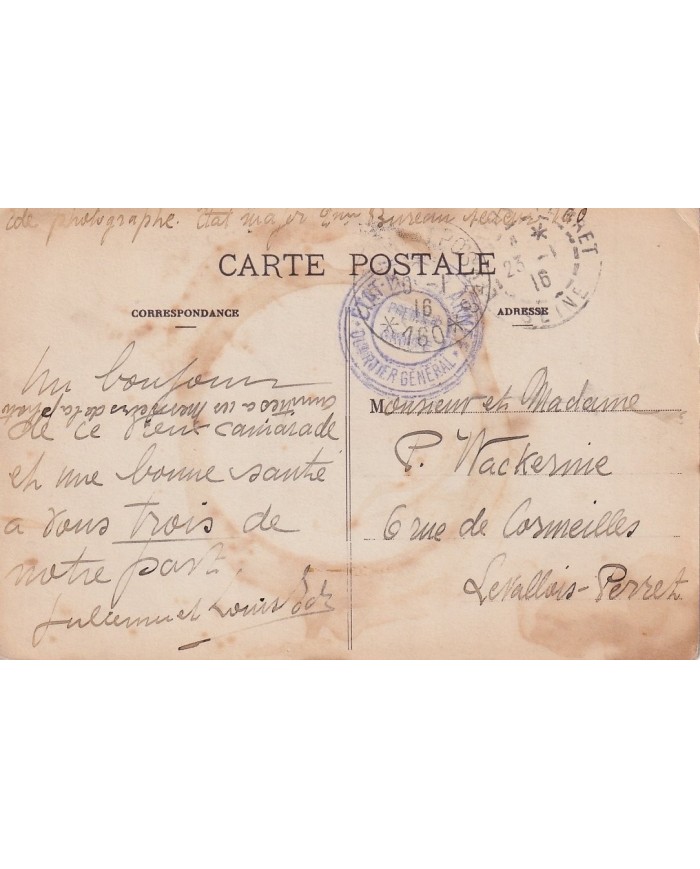 photographe. Etat major Bureau
CARTE POSTALE
CORRESPONDANCE
ADRESSE
ÉTAT-M
QUARTIER GÉNÉRAL
16
*160*
RET
23 - 1
16
SEINE
Un bonjour
amitiés a
de la
de ce vieux camarade
et une bonne santé
a vous trois de
notre part.
et Louis
Monsieur et Madame
P. Wackernie
6 rue de Cormeilles
Levallois-Perret